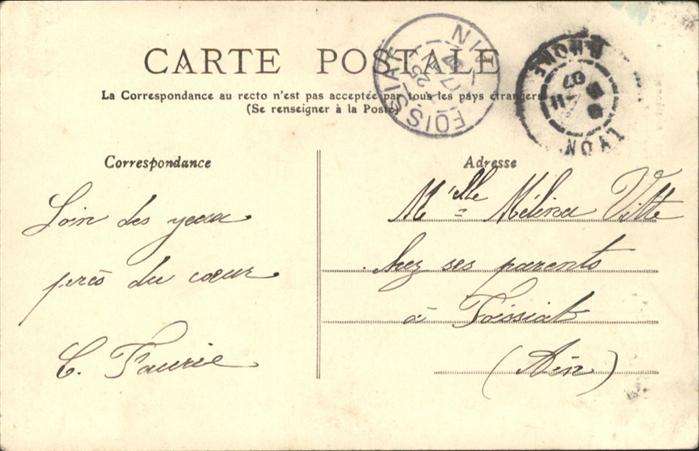 CARTE POSTALE
La Correspondance au recto n'est pas acceptée par tous les pays étrangers
(Se renseigner à la Poste)
FOISSIAT
AIN
LYON
RHONE
07
Correspondance
Loin des yeux
près du cœur
C. Faurie
Adresse
Mlle Mélina Vitte
chez ses parents
à Foissiat
(Ain)